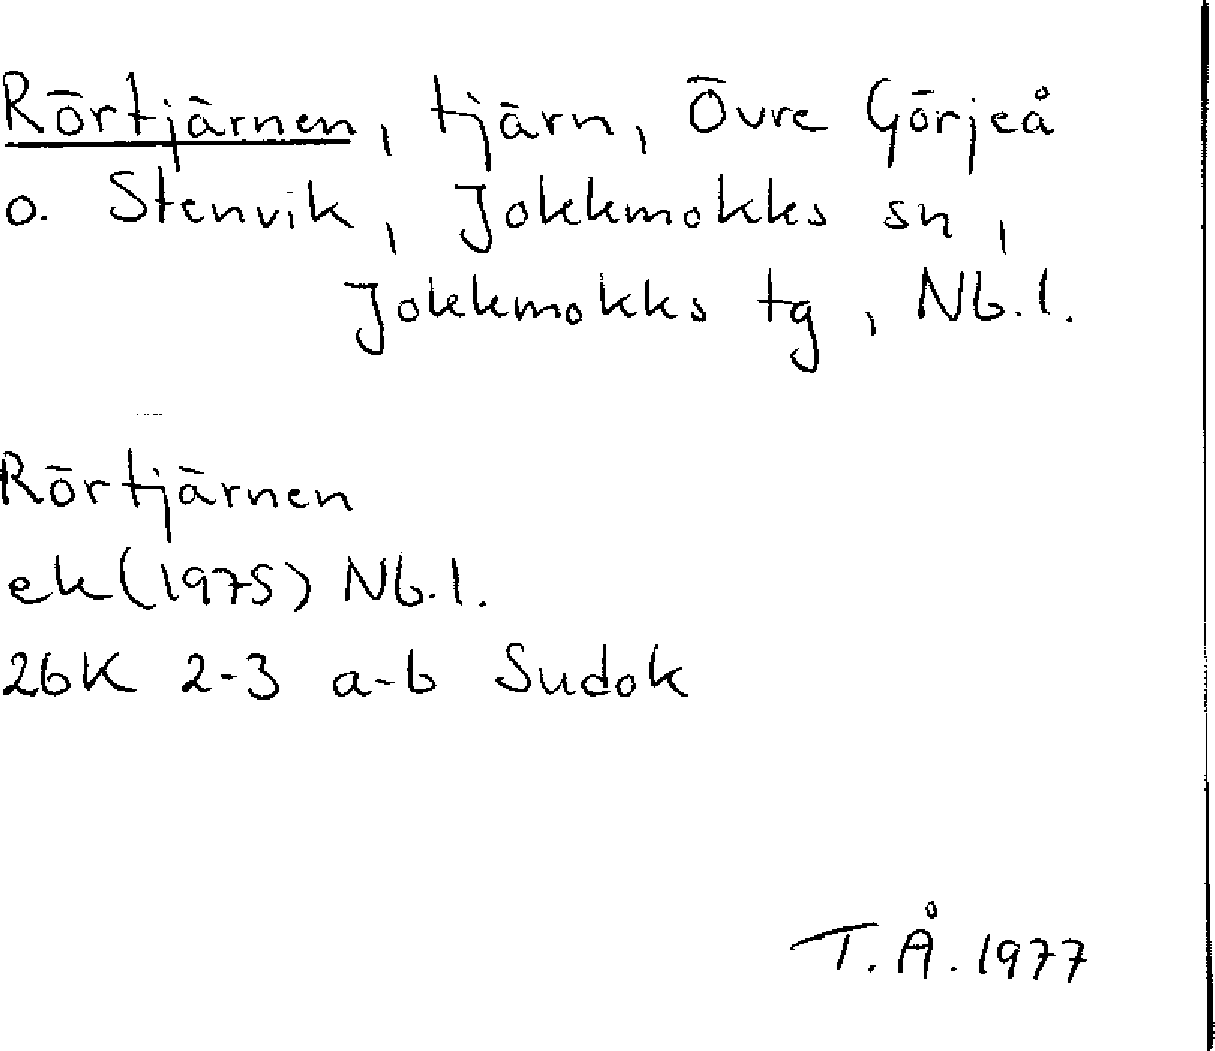 Rörtjärnen, tjärn, Övre Görjeå
o. Stenvik, Jokkmokks sn,
Jokkmokks tg, Nb.l.
Rörtjärnen
ek(1975) Nb.l.
26K 2-3 a-b Sudok
T.Å. 1977